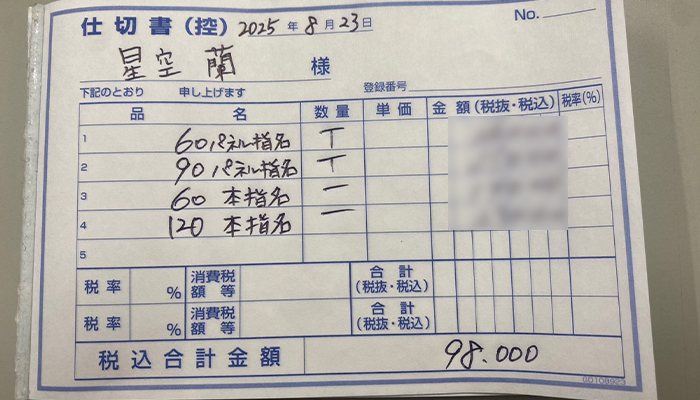 仕切書(控) 2025年8月23日 No.
星空 蘭 様
下記のとおり 申し上げます 登録番号
品名 数量 単価 金額(税抜・税込) 税率(%)
1 60パネル指名 T
2 90パネル指名 T
3 60 本指名 一
4 120 本指名 一
5
税率 % 消費税額等 合計(税抜・税込)
税率 % 消費税額等 合計(税抜・税込)
税込合計金額 98.000